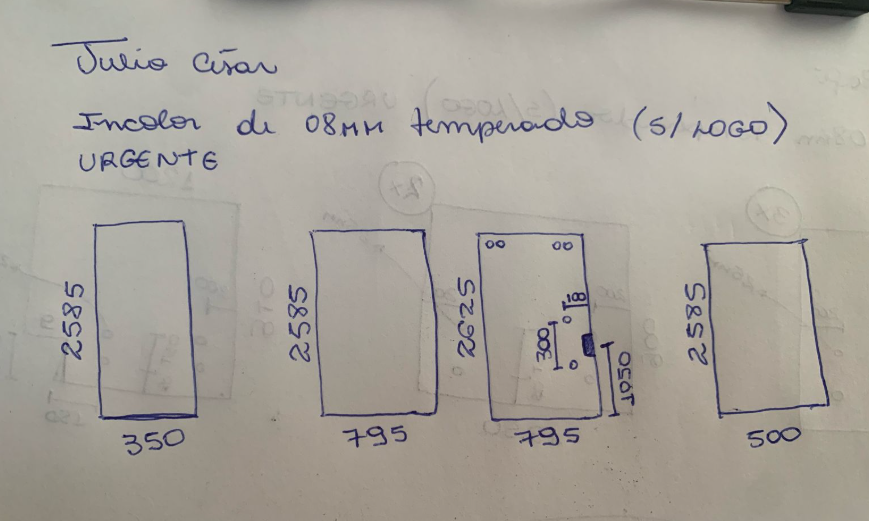 Julio César
Incolor de 08MM temperado (S/LOGO)
URGENTE
2585
350
2585
795
2625
300
1050
795
2585
500